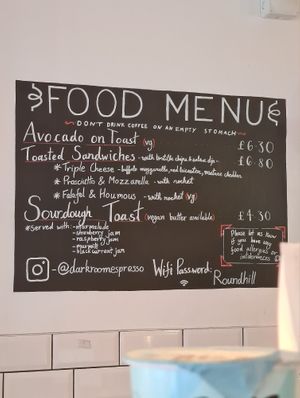 FOOD MENU
DON'T DRINK COFFEE ON AN EMPTY STOMACH
Avocado on Toast (vg) £6.30
Toasted Sandwiches - with tortilla chips & salsa dip - £6.80
* Triple Cheese - buffalo mozzarella, red leicester, mature cheddar
* Prosciutto & Mozzarella - with rocket
* Falafel & Houmous - with rocket (vg)
Sourdough Toast (vegan butter available) £4.30
* served with: - marmalade
- strawberry jam
- raspberry jam
- marmite
- blackcurrant jam
Please let us know
if you have any
food allergies or
intolerances
- @darkroomespresso
Wifi Password:
Roundhill